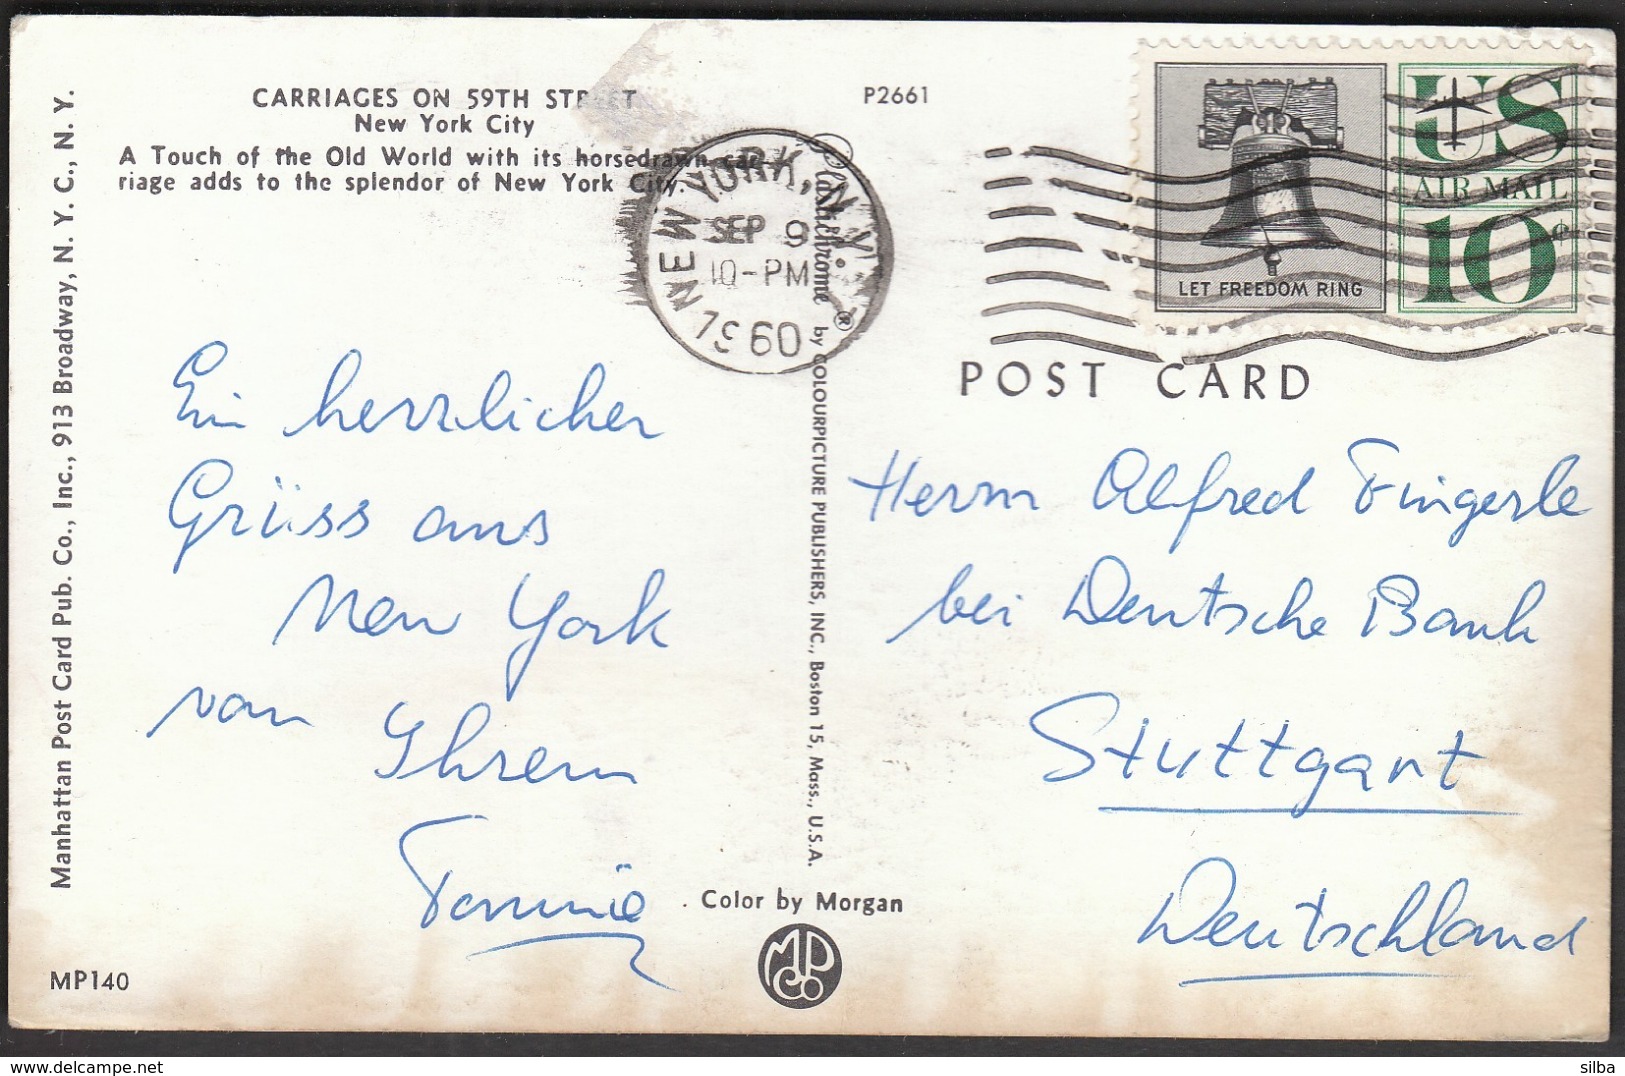 CARRIAGES ON 59TH STREET
New York City
A Touch of the Old World with its horsedrawn car-
riage adds to the splendor of New York City.
P2661
NEW YORK, N.Y.
SEP 9
10-PM
1960
LET FREEDOM RING
US
AIR MAIL
10¢
POST CARD
Ein herrlicher
Grüss aus
New York
von Ihrem
Herrn Alfred Fingerle
bei Deutsche Bank
Stuttgart
Deutschland
Manhattan Post Card Pub. Co., Inc., 913 Broadway, N. Y. C., N. Y.
Plastichrome ® by COLOURPICTURE PUBLISHERS, INC., Boston 15, Mass., U.S.A.
Color by Morgan
MPCo
MP140
silba